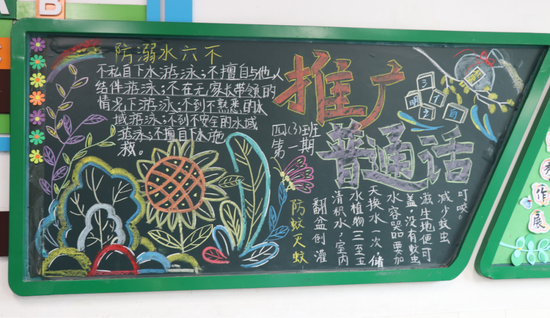 防溺水六不
不私自下水游泳;不擅自与他人
结伴游泳;不在无家长带领的
情况下游泳;不到不熟悉的水
域游泳;不到不安全的水域
游泳;不擅自下水施
救。
推广
普通话
四(3)班
第一期
防蚊灭蚊
翻盆倒灌
清积水,室内
水植物三至五
天换水一次储
水容器要加
盖,没有蚊虫
滋生地便可
减少蚊虫
叮咬。
B
作
展